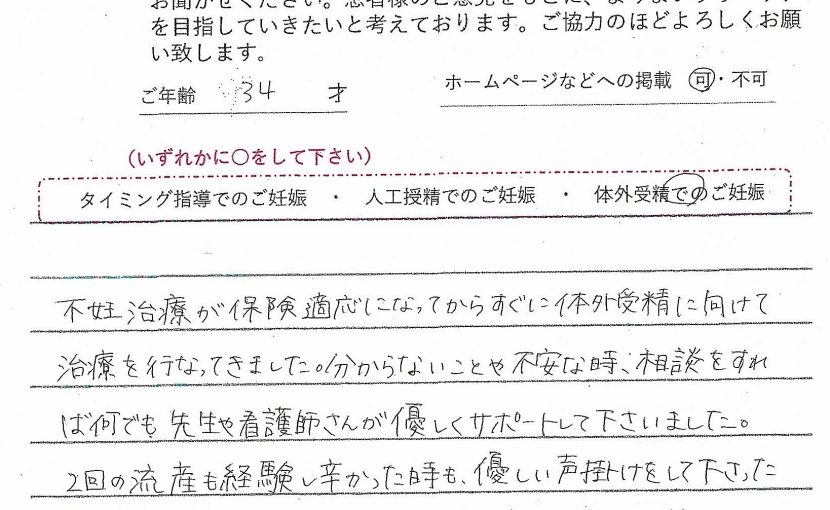 を目指していきたいと考えております。ご協力のほどよろしくお願
い致します。
ご年齢 34 才
ホームページなどへの掲載 可・不可
(いずれかに〇をして下さい)
タイミング指導でのご妊娠 ・ 人工授精でのご妊娠 ・ 体外受精でのご妊娠
不妊治療が保険適応になってからすぐに体外受精に向けて
治療を行なってきました。分からないことや不安な時、相談をすれ
ば何でも先生や看護師さんが優しくサポートして下さいました。
2回の流産も経験し辛かった時も、優しい声掛けをして下さった